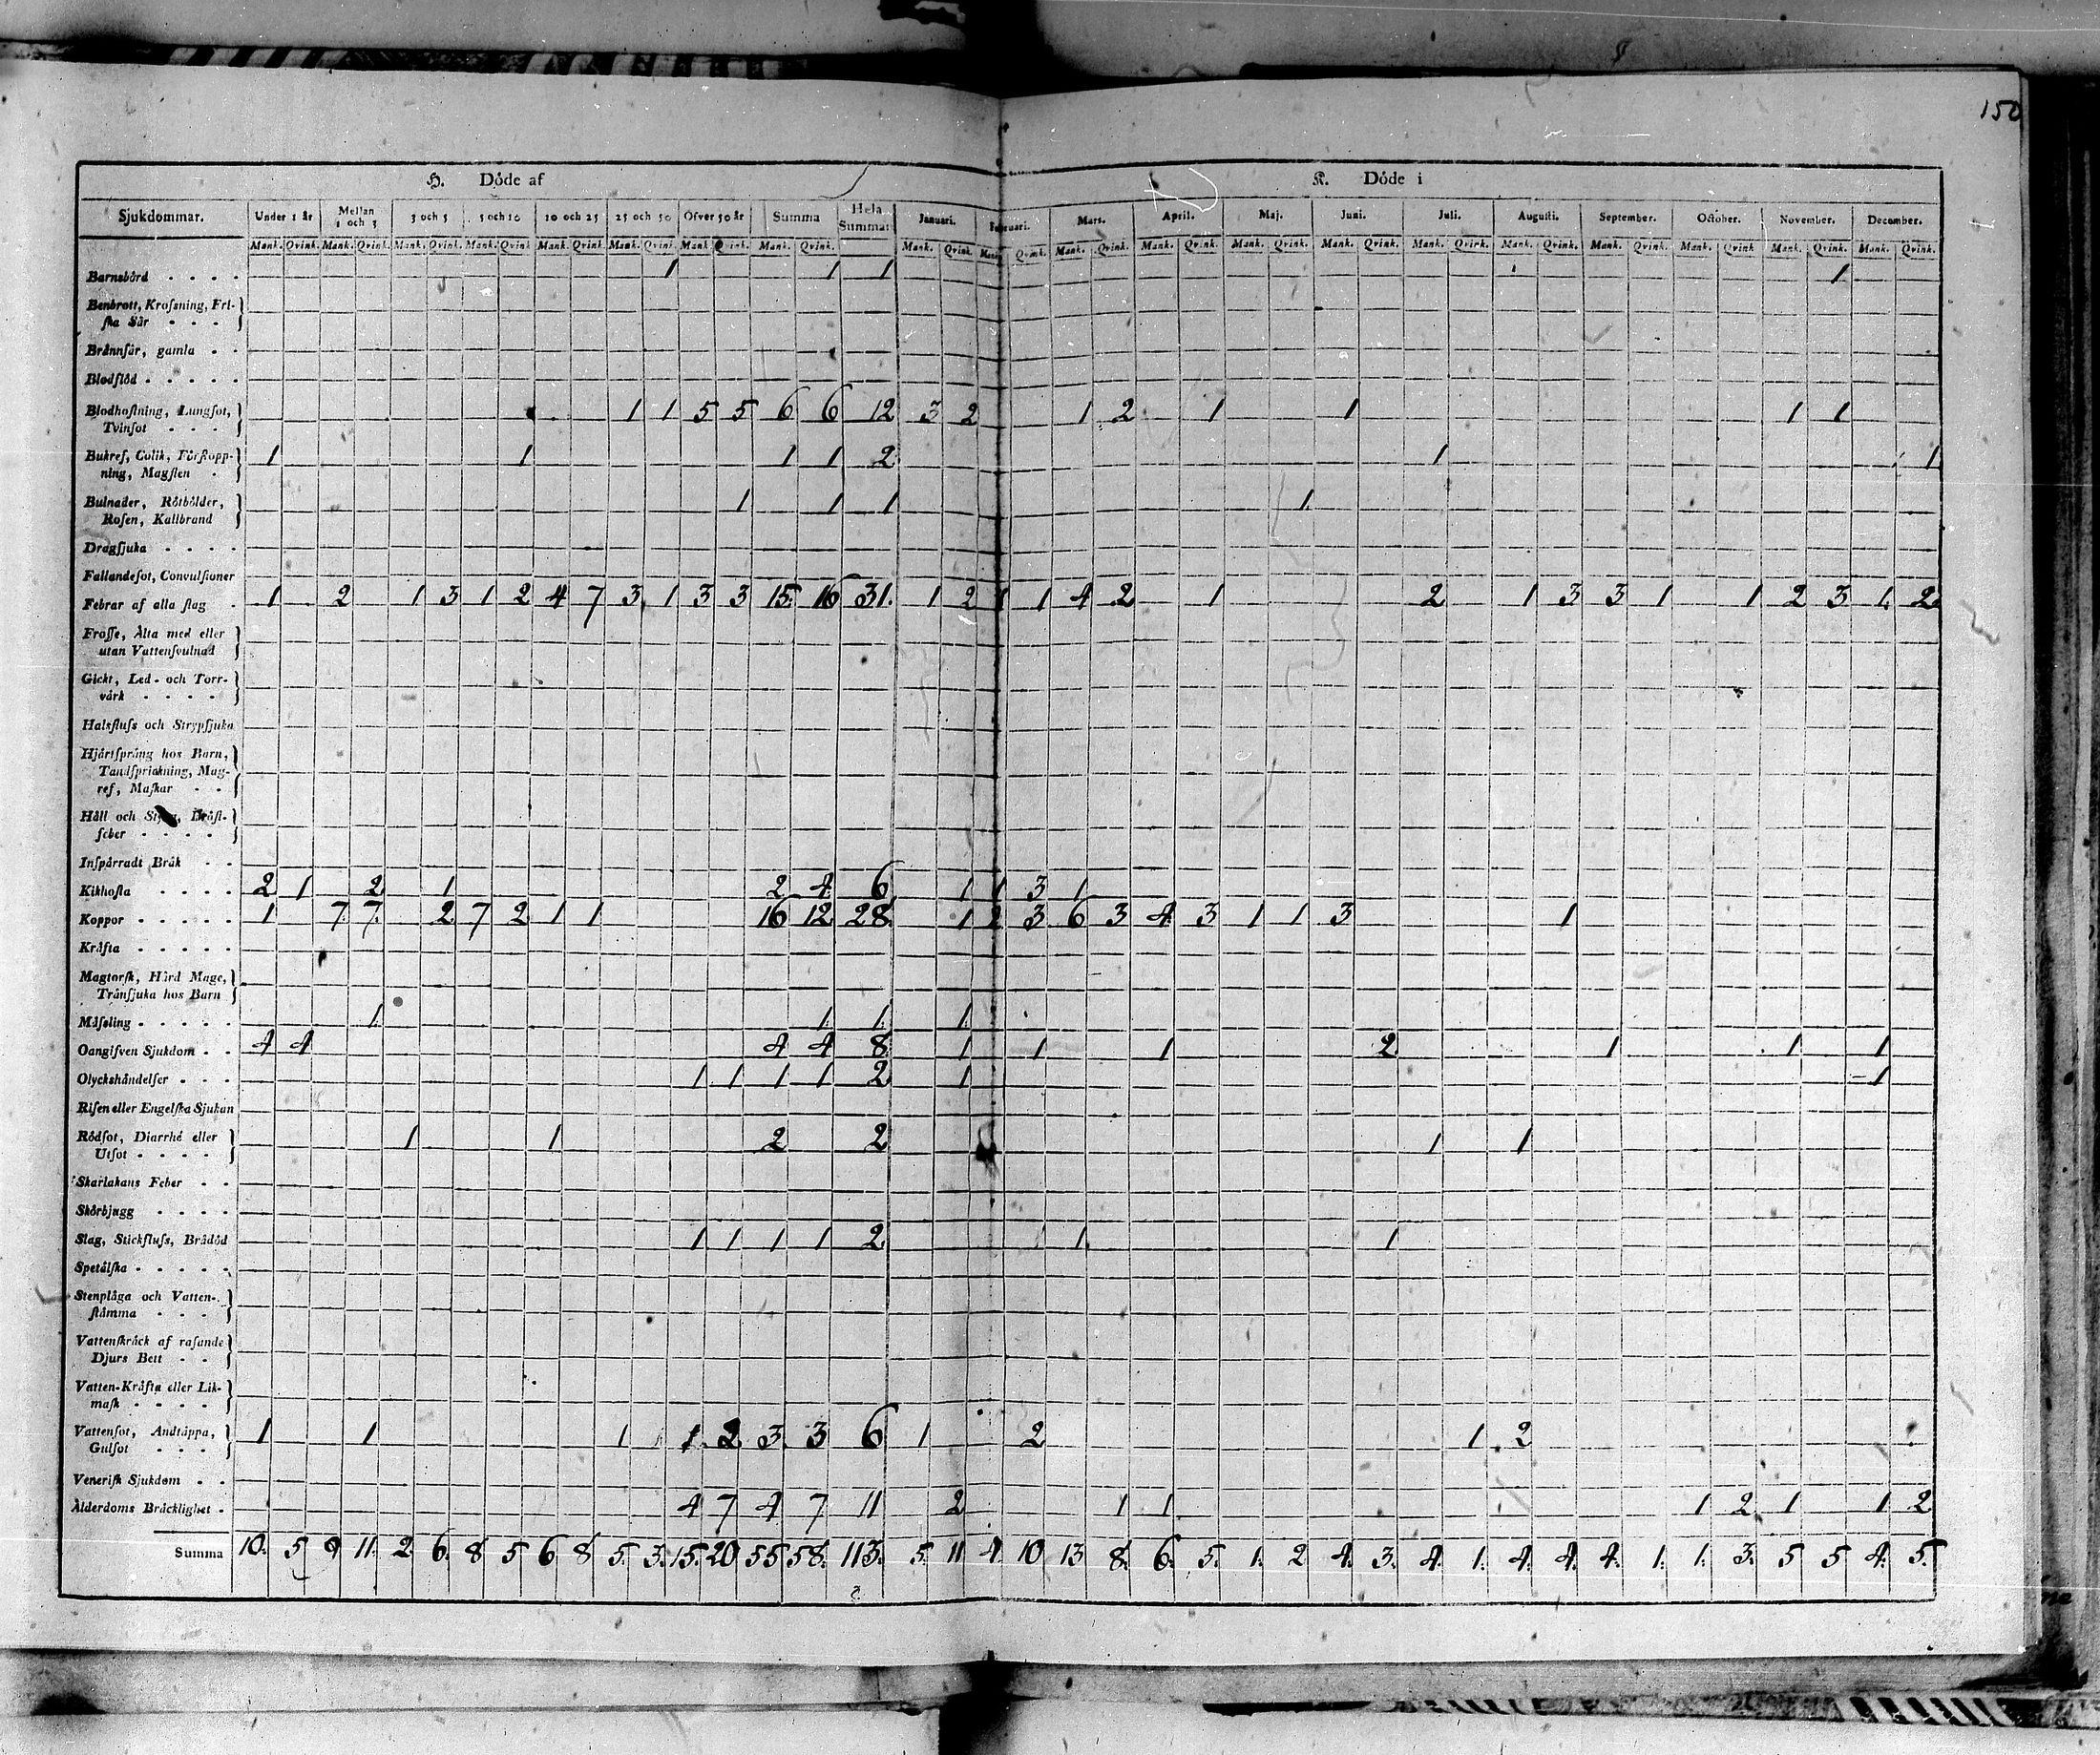 150
H. Döde af K. Döde i
Sjukdommar. Under 1 år Mellan 1 och 3 3 och 5 5 och 10 10 och 25 25 och 50 Öfver 50 år Summa Hela Summan Januari. Februari. Mart. April. Maj. Juni. Juli. Augusti. September. October. November. December.
Mank. Qvink. Mank. Qvink. Mank. Qvink. Mank. Qvink. Mank. Qvink. Mank. Qvink. Mank. Qvink. Mank. Qvink. Mank. Qvink. Mank. Qvink. Mank. Qvink. Mank. Qvink. Mank. Qvink. Mank. Qvink. Mank. Qvink. Mank. Qvink. Mank. Qvink. Mank. Qvink. Mank. Qvink. Mank. Qvink.
Barnsbörd 1 1 1 1
Benbrott, Krossning, Fri-
ska Sår
Brännsår, gamla
Blodflöd
Blodhostning, Lungsot, 1 1 5 5 6 6 12 3 2 1 2 1 1 1 1
Tvinsot
Bukref, Colik, Förstopp- 1 1 1 1 2 1 1
ning, Magsten
Bulnader, Rötbölder, 1 1 1 1
Rosen, Kallbrand
Dragsjuka
Fallandesot, Convulsioner
Febrar af alla slag 1 2 1 3 1 2 4 7 3 1 3 3 15. 16 31. 1 2 1 1 4 2 1 2 1 3 3 1 1 2 3 1. 2.
Frosse, Älta med eller
utan Vattensvulnad
Gickt, Led- och Torr-
värk
Halsfluss och Strypsjuka
Hjärtsprång hos Barn,
Tandsprickning, Mag-
ref, Maskar
Håll och Styng, Bröst-
feber
Inspärradt Bråk
Kikhosta 2 1 2 1 2 4 6 1 1 3 1
Koppor 1 7 7 2 7 2 1 1 16 12 28 1 2 3 6 3 4 3 1 1 3 1
Kräfta
Magtorsk, Hård Mage,
Trånsjuka hos Barn
Mässling 1 1 1 1
Oangifven Sjukdom 4 4 4 4 8 1 1 1 2 1 1 1
Olyckshändelser 1 1 1 1 2 1 1
Risen eller Engelska Sjukan
Rödsot, Diarrhé eller 1 1 2 2 1 1
Utsot
Skarlakans Feber
Skörbjugg
Slag, Stickfluss, Brådöd 1 1 1 1 2 1 1
Spetälska
Stenplåga och Vatten-
stämma
Vattenskräck af rasande
Djurs Bett
Vatten-Kräfta eller Lik-
mask
Vattensot, Andtäppa, 1 1 1 1 2 3 3 6 1 2 1 2
Gulsot
Venerisk Sjukdom
Ålderdoms Bräcklighet 4 7 4 7 11 2 1 1 1 2 1 1 2
Summa 10. 5 9 11. 2 6. 8 5 6 8 5. 3. 15. 20 55 58. 113. 5. 11 4 10 13 8. 6. 5. 1. 2 4. 3. 4. 1. 4. 4. 4. 1. 1. 3. 5 5 4. 5.